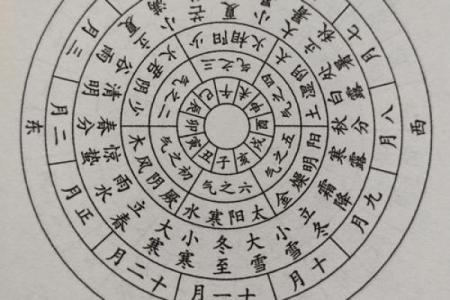 东
西
正月
二月
三月
七月
八月
九月
十月
十一月
十二月
立春
雨水
惊蛰
春分
清明
谷雨
立夏
小满
芒
夏
小
大暑
立秋
处暑
白露
秋分
寒露
霜降
立冬
小雪
大雪
冬至
小寒
大寒
厥阴风木
少阴君火
少阳相火
太阴湿土
阳明燥金
太阳寒水
初之气
二之气
三之气
四之气
五之气
六之气
子
丑
寅
卯
辰
巳
午
未
申
酉
戌
亥